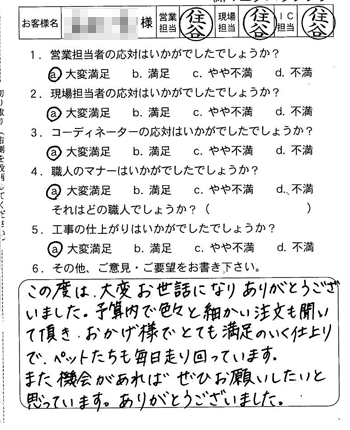 お客様名 様 営業担当 住谷 現場担当 住谷 IC担当 住谷
1．営業担当者の応対はいかがでしたでしょうか？
a 大変満足 b. 満足 c. やや不満 d. 不満
2．現場担当者の応対はいかがでしたでしょうか？
a 大変満足 b. 満足 c. やや不満 d. 不満
3．コーディネーターの応対はいかがでしたでしょうか？
a 大変満足 b. 満足 c. やや不満 d. 不満
4．職人のマナーはいかがでしたでしょうか？
a. 大変満足 b. 満足 c. やや不満 d. 不満
それはどの職人でしょうか？（ ）
5．工事の仕上がりはいかがでしたでしょうか？
a 大変満足 b. 満足 c. やや不満 d. 不満
6．その他、ご意見・ご要望をお書き下さい。
この度は、大変お世話になりありがとうござ
いました。予算内で色々と細かい注文も聞い
て頂き、おかげ様でとても満足のいく仕上り
で、ペットたちも毎日走り回っています。
また機会があれば ぜひお願いしたいと
思っています。ありがとうございました。